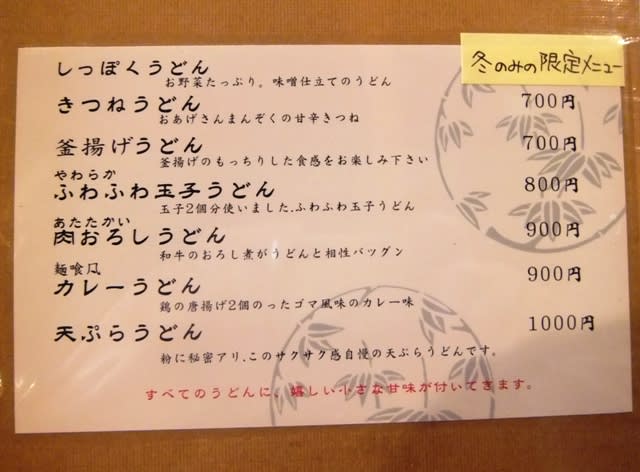 冬のみの限定メニュー
しっぽくうどん
お野菜たっぷり。味噌仕立てのうどん
きつねうどん 700円
おあげさんまんぞくの甘辛きつね
釜揚げうどん 700円
釜揚げのもっちりした食感をお楽しみ下さい
やわらか
ふわふわ玉子うどん 800円
玉子2個分使いました.ふわふわ玉子うどん
あたたかい
肉おろしうどん 900円
和牛のおろし煮がうどんと相性バツグン
麺喰風
カレーうどん 900円
鶏の唐揚げ2個のったゴマ風味のカレー味
天ぷらうどん 1000円
粉に秘密アリ.このサクサク感自慢の天ぷらうどんです。
すべてのうどんに、嬉しい小さな甘味が付いてきます。